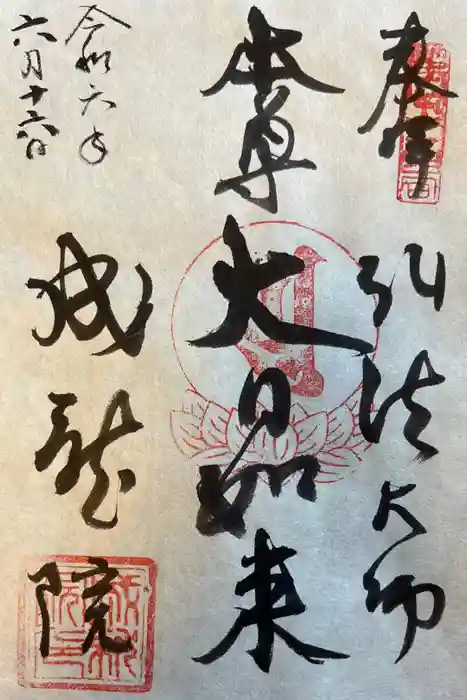 奉拝
弘法大師
本尊
大日如来
成龍院
令和六年
六月十六日